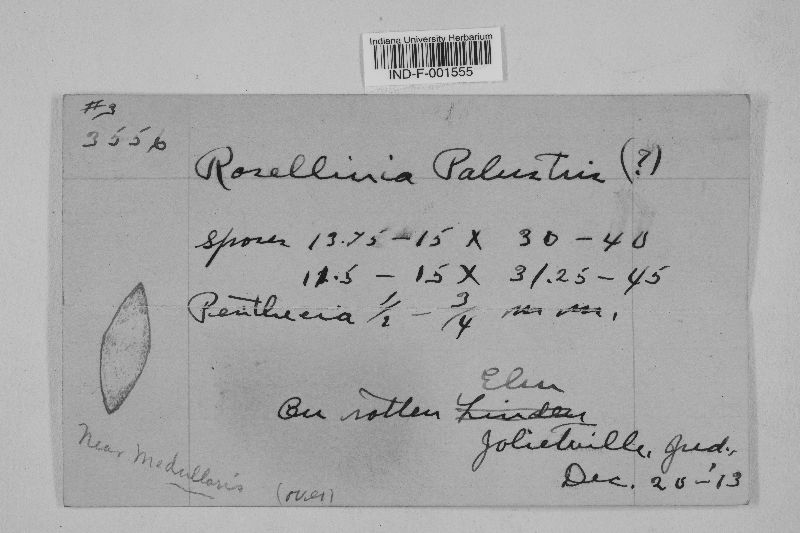 Indiana University Herbarium
IND-F-001555
#3
3556
Rosellinia Palustris (?)
Spores 13.75-15 X 30-40
11.5 - 15 X 31.25-45
Perithecia 1/2 - 3/4 m m.
Elm
On rotten Linden
Jolietville, Ind.,
Dec. 20-'13
Near Medullaris
(over)